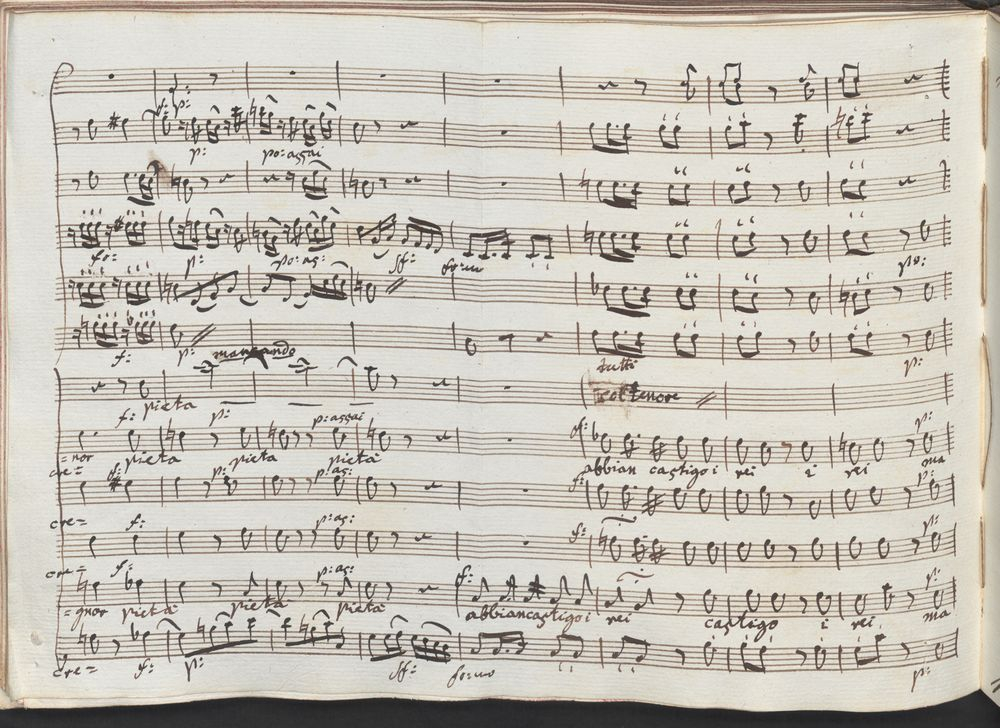 f: p:
p: po: assai
fo: p: po: as: sf: fo:mo po:
f: p: mancando tutti p:
f: pieta p: p: assai col tenore
f: p:
=nor pieta pieta pieta abbian castigo i rei i rei ma
cre= f: p: p: as: f: p:
cre= f: p: as: f: p:
cre= f: p: as: f: p:
=gnor pietà pietà pietà abbian castigo i rei castigo i rei ma
cre= f: p: sf: fo:mo p: